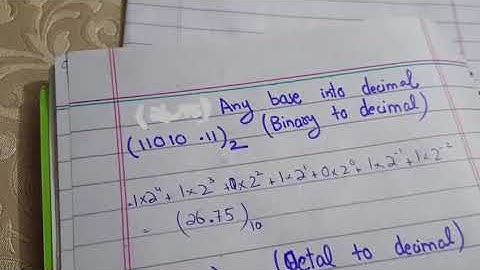 Any base into decimal
(11010.11)₂ (Binary to decimal)
1×2⁴ + 1×2³ + 0×2² + 1×2¹ + 0×2⁰ + 1×2⁻¹ + 1×2⁻²
= (26.75)₁₀
(Octal to decimal)